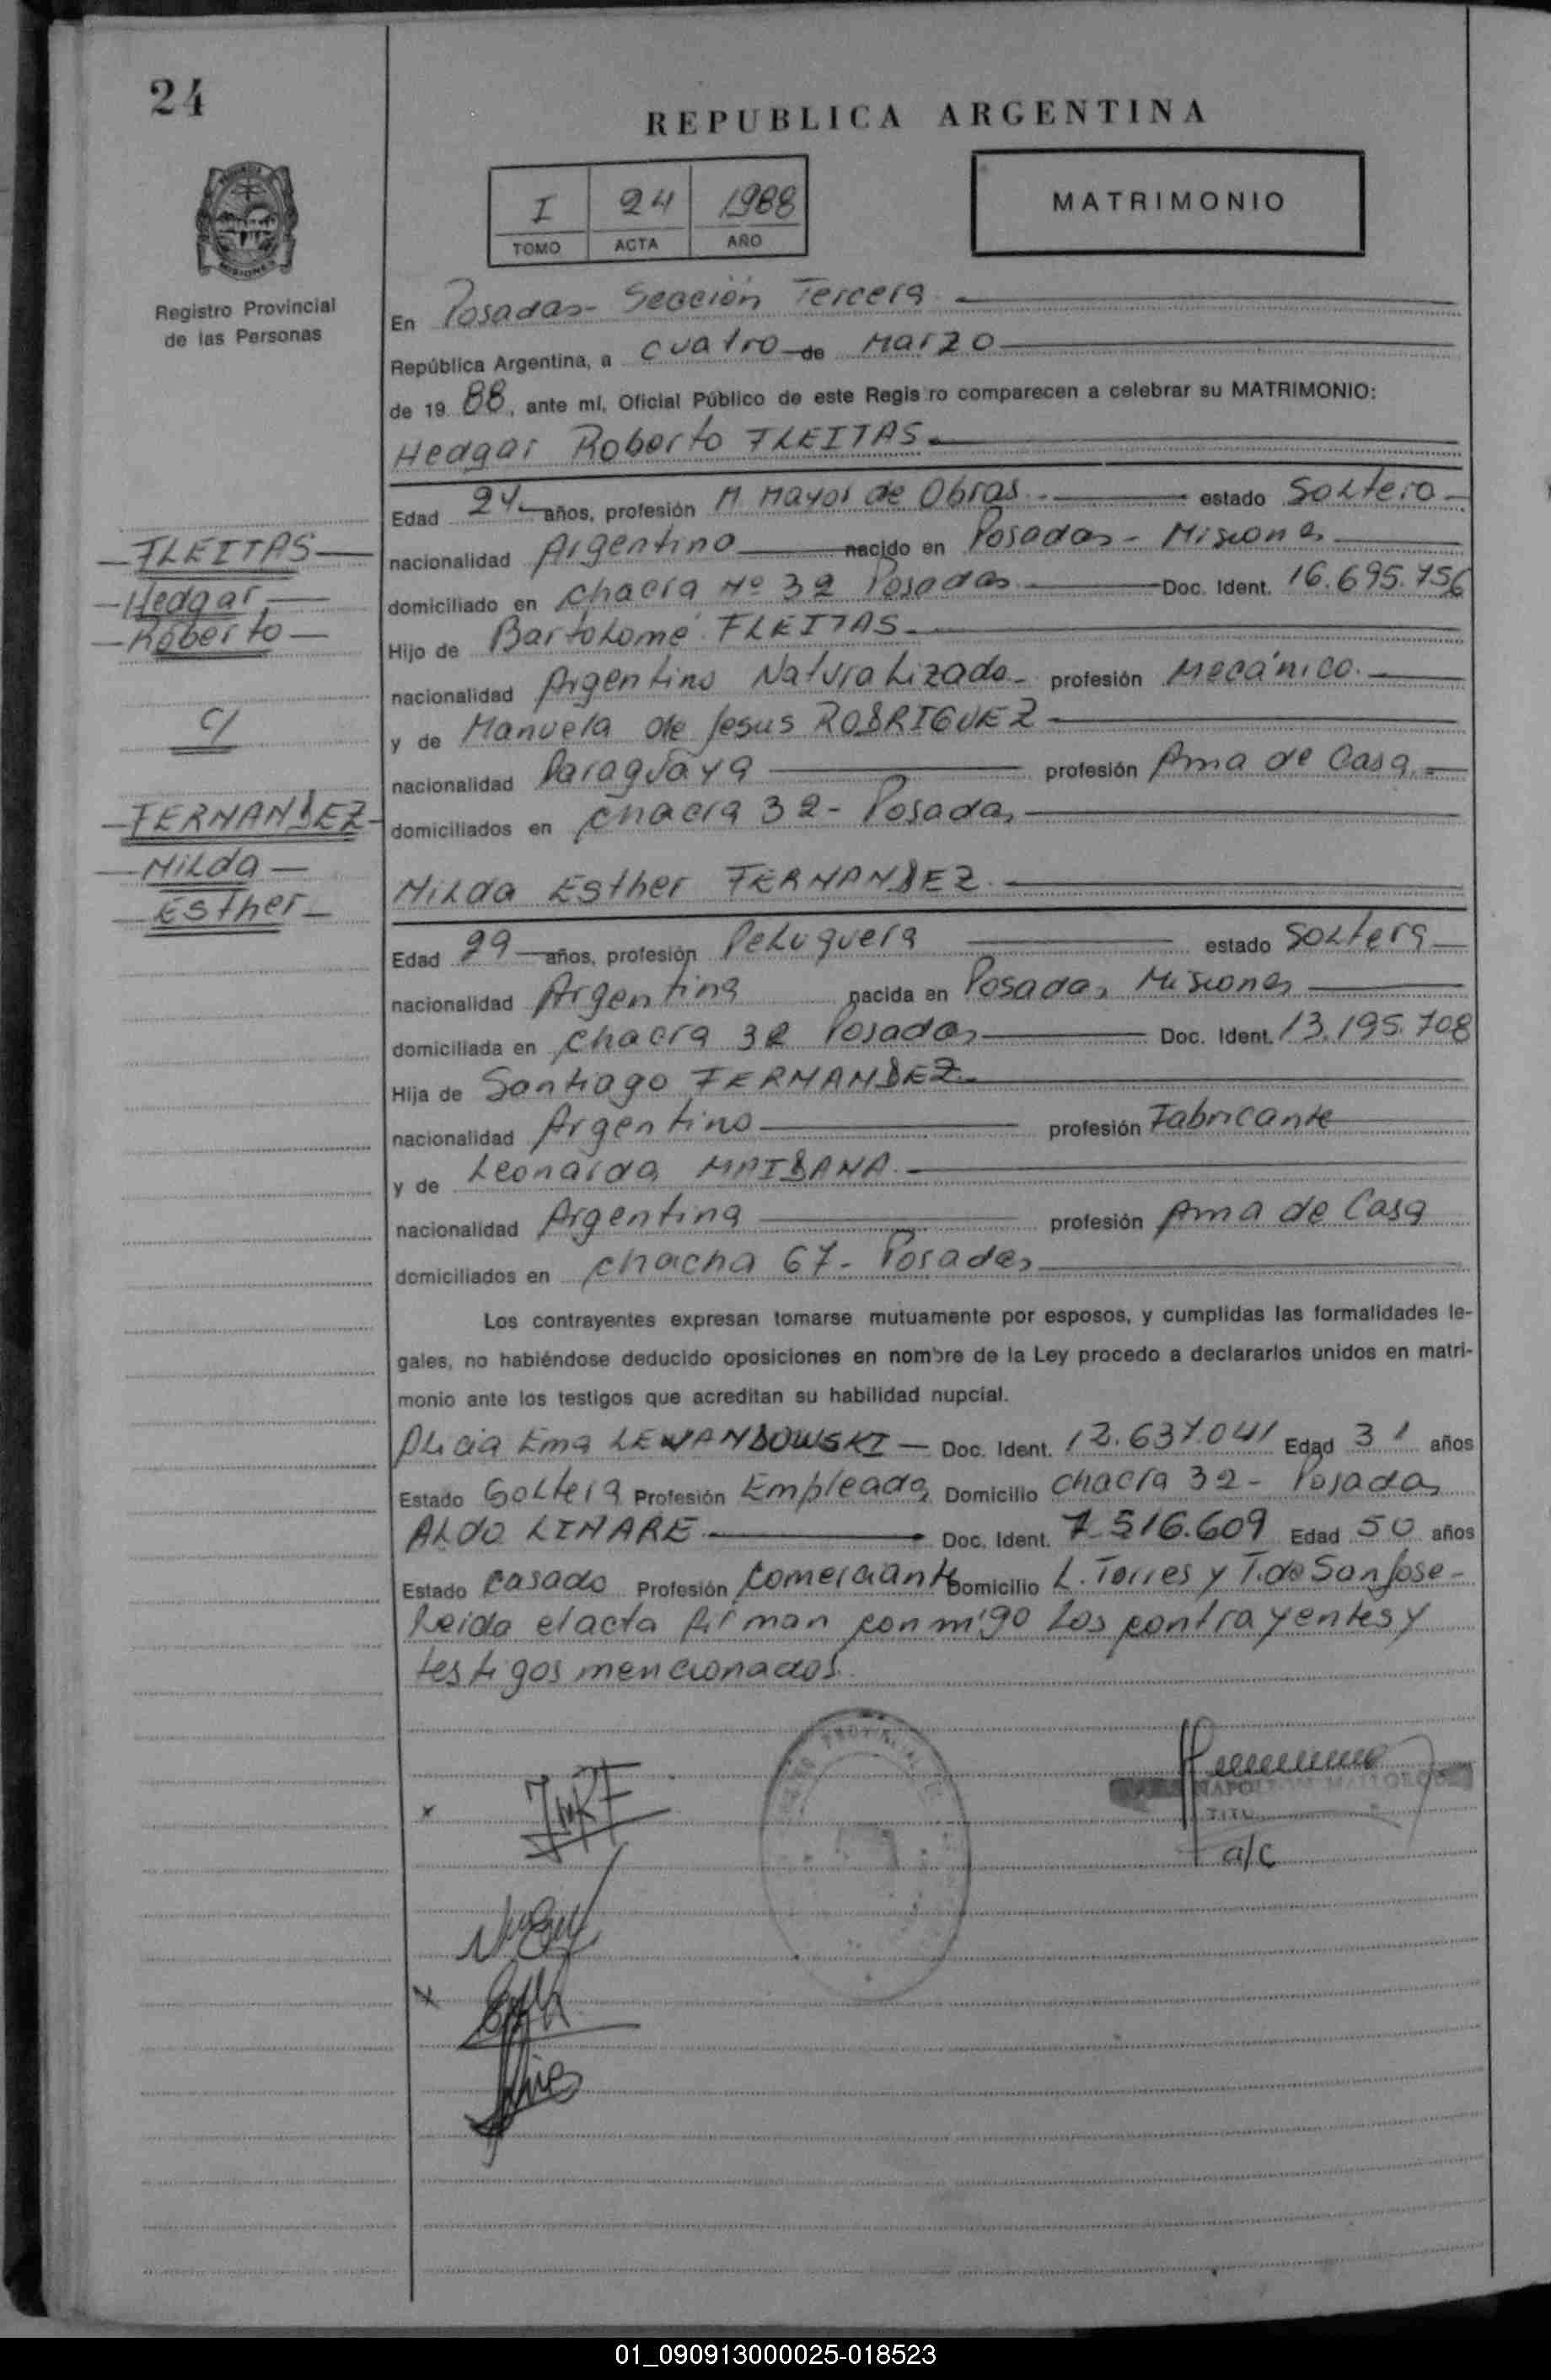 24
REPUBLICA ARGENTINA
I 24 1988
TOMO ACTA AÑO
MATRIMONIO
MISIONES
Registro Provincial
de las Personas
En Posadas - Sección Tercera
República Argentina, a cuatro de Marzo
de 19 88, ante mí, Oficial Público de este Regis ro comparecen a celebrar su MATRIMONIO:
Hedgar Roberto FLEITAS
Edad 24 años, profesión M. Mayor de Obras estado Soltero
nacionalidad Argentino nacido en Posadas - Misiones
domiciliado en chacra Nº 32 Posadas Doc. Ident. 16.695.756
Hijo de Bartolomé FLEITAS
nacionalidad Argentino Naturalizado profesión Mecánico.
y de Manuela de Jesus RODRIGUEZ
nacionalidad Paraguaya profesión Ama de Casa.
domiciliados en chacra 32 - Posadas
FLEITAS
Hedgar
Roberto
c/
FERNANDEZ
Nilda
Esther
Nilda Esther FERNANDEZ
Edad 29 años, profesión Peluquera estado Soltera
nacionalidad Argentina nacida en Posadas, Misiones
domiciliada en chacra 32 Posadas Doc. Ident. 13.195.708
Hija de Santiago FERNANDEZ
nacionalidad Argentino profesión Fabricante
y de Leonarda MAIDANA
nacionalidad Argentina profesión Ama de Casa
domiciliados en chacha 67 - Posadas
Los contrayentes expresan tomarse mutuamente por esposos, y cumplidas las formalidades le-
gales, no habiéndose deducido oposiciones en nombre de la Ley procedo a declararlos unidos en matri-
monio ante los testigos que acreditan su habilidad nupcial.
Alicia Ema LEWANDOWSKI Doc. Ident. 12.637.041 Edad 31 años
Estado Soltera Profesión Empleada Domicilio chacra 32 - Posadas
ALDO LINARE Doc. Ident. 7.516.609 Edad 50 años
Estado casado Profesión Comerciante Domicilio L. Torres y T. de San Jose -
Leida el acta firman conmigo los contrayentes y
testigos mencionados.
a/c
01_090913000025-018523